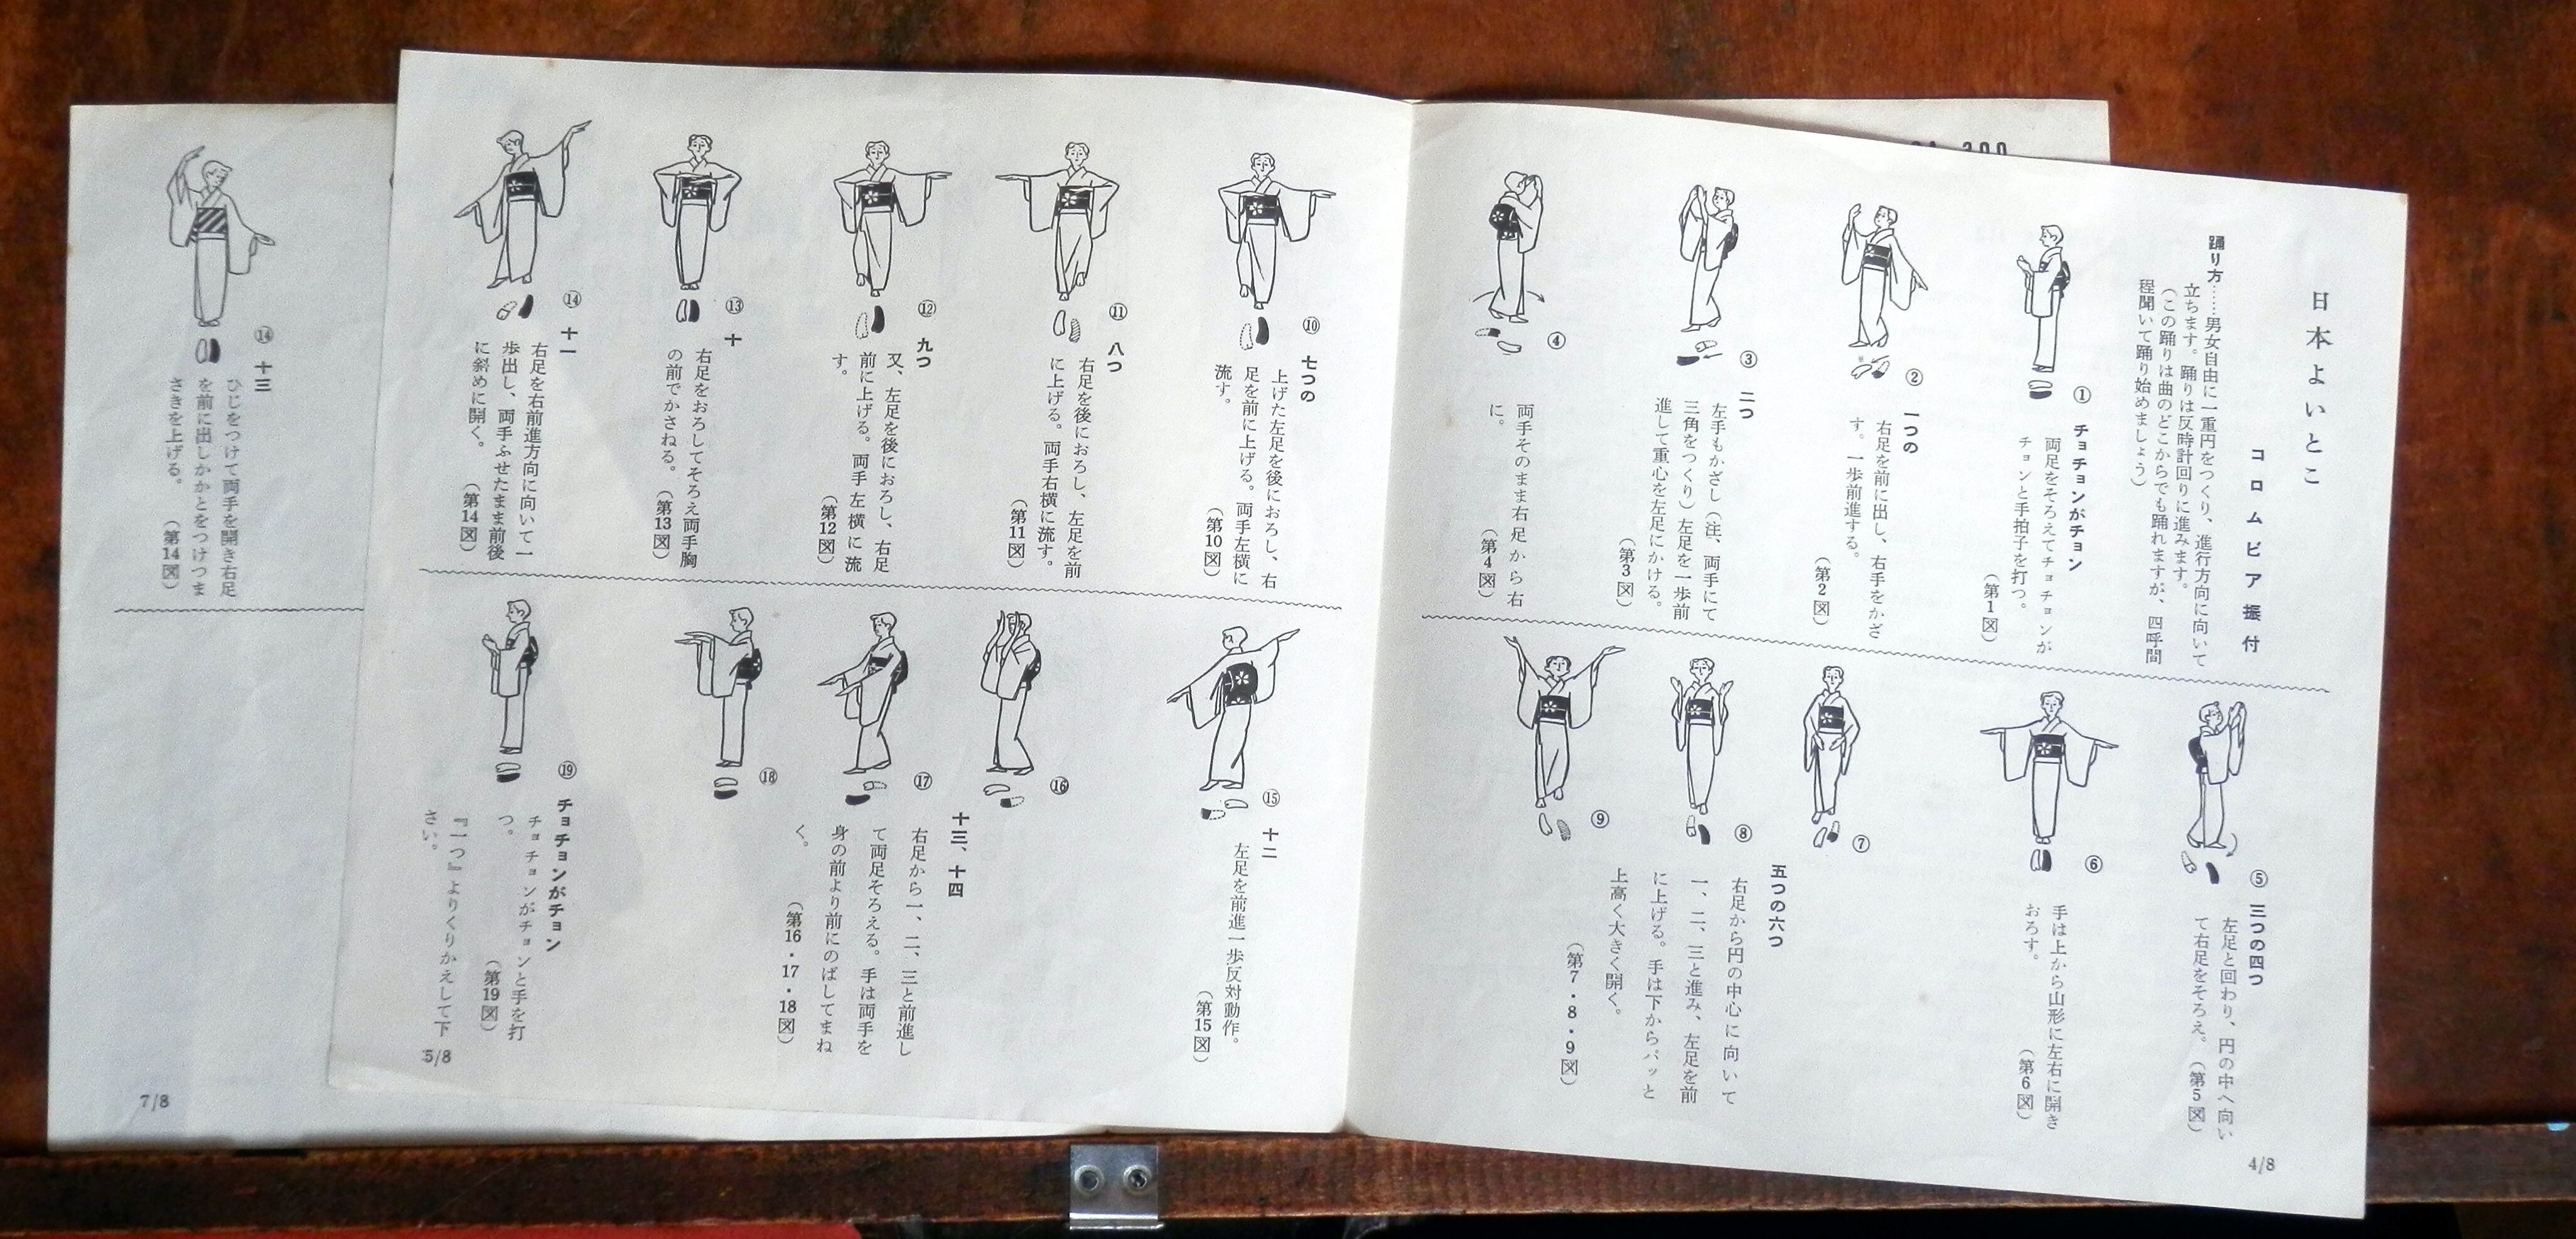 日本よいとこ
コロムビア振付
踊り方……男女自由に一重円をつくり、進行方向に向いて
立ちます。踊りは反時計回りに進みます。
(この踊りは曲のどこからでも踊れますが、四呼間
程聞いて踊り始めましょう)
① チョチョンがチョン
両足をそろえてチョチョンが
チョンと手拍子を打つ。
(第1図)
② 一つの
右足を前に出し、右手をかざ
す。一歩前進する。
(第2図)
③ 二つ
左手もかざし(注、両手にて
三角をつくり)左足を一歩前
進して重心を左足にかける。
(第3図)
④
両手そのまま右足から右
に。
(第4図)
⑤ 三つの四つ
左足と回わり、円の中へ向い
て右足をそろえ。(第5図)
⑥
手は上から山形に左右に開き
おろす。
(第6図)
⑦
⑧
⑨
五つの六つ
右足から円の中心に向いて
一、二、三と進み、左足を前
に上げる。手は下からパッと
上高く大きく開く。
(第7・8・9図)
4/8
⑩ 七つの
上げた左足を後におろし、右
足を前に上げる。両手左横に
流す。
(第10図)
⑪ 八つ
右足を後におろし、左足を前
に上げる。両手右横に流す。
(第11図)
⑫ 九つ
又、左足を後におろし、右足
前に上げる。両手左横に流
す。
(第12図)
⑬ 十
右足をおろしてそろえ両手胸
の前でかさねる。
(第13図)
⑭ 十一
右足を右前進方向に向いて一
歩出し、両手ふせたまま前後
に斜めに開く。
(第14図)
⑮ 十二
左足を前進一歩反対動作。
(第15図)
⑯
⑰
⑱
十三、十四
右足から一、二、三と前進し
て両足そろえる。手は両手を
身の前より前にのばしてまね
く。
(第16・17・18図)
⑲ チョチョンがチョン
チョチョンがチョンと手を打
つ。
(第19図)
『一つ』よりくりかえして下
さい。
5/8
⑭ 十三
ひじをつけて両手を開き右足
を前に出しかかとをつけつま
さきを上げる。
(第14図)
7/8